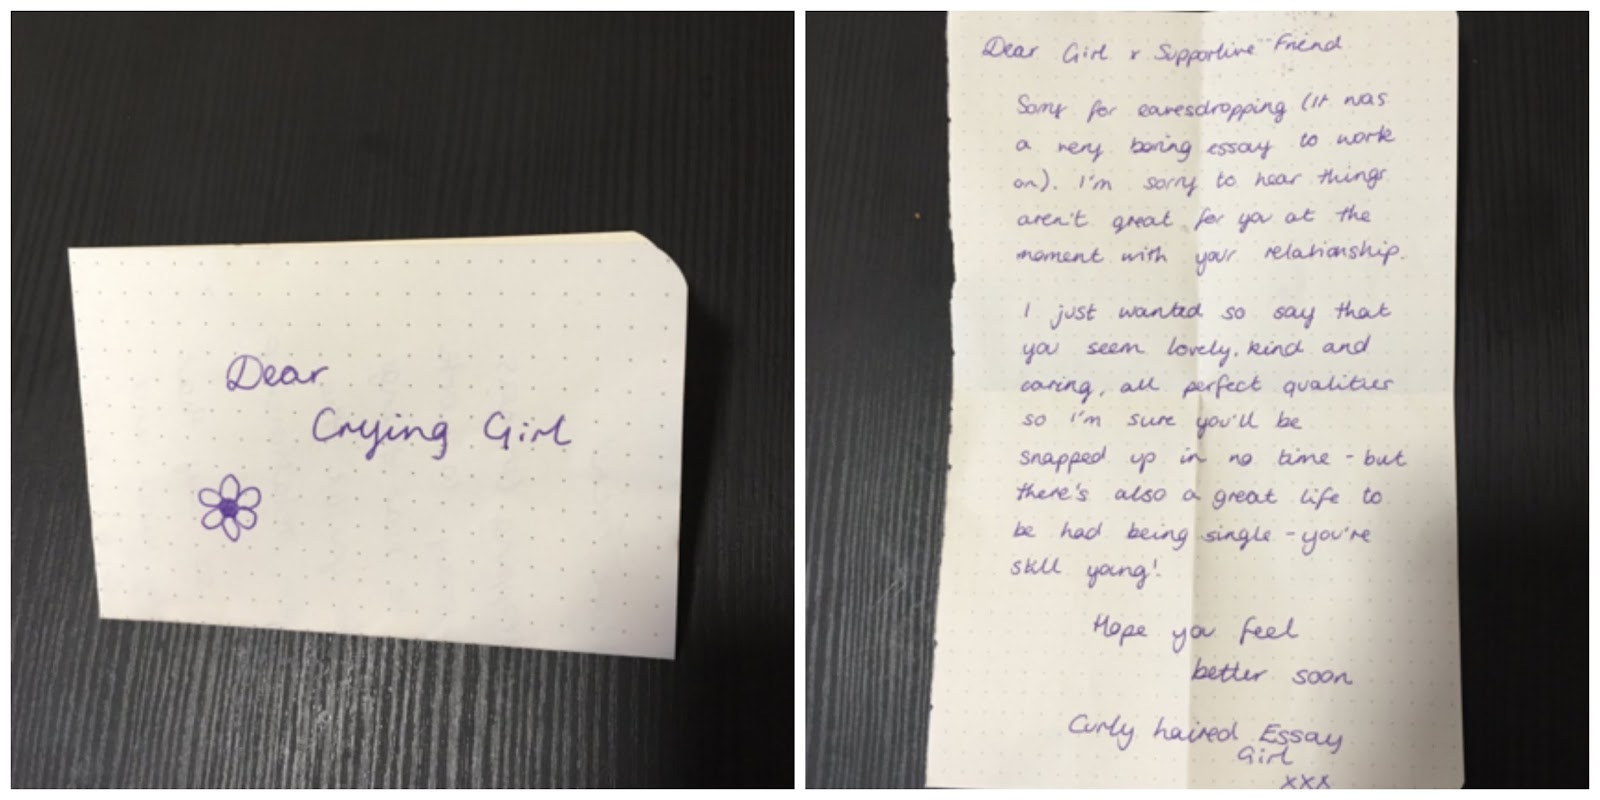 Dear
Crying Girl
Dear Girl & Supportive Friend
Sorry for eavesdropping (It was
a very boring essay to work
on). I'm sorry to hear things
aren't great for you at the
moment with your relationship.
I just wanted so say that
you seem lovely, kind and
caring, all perfect qualities
so I'm sure you'll be
snapped up in no time - but
there's also a great life to
be had being single - you're
still young!
Hope you feel
better soon
Curly haired Essay
Girl
xxx